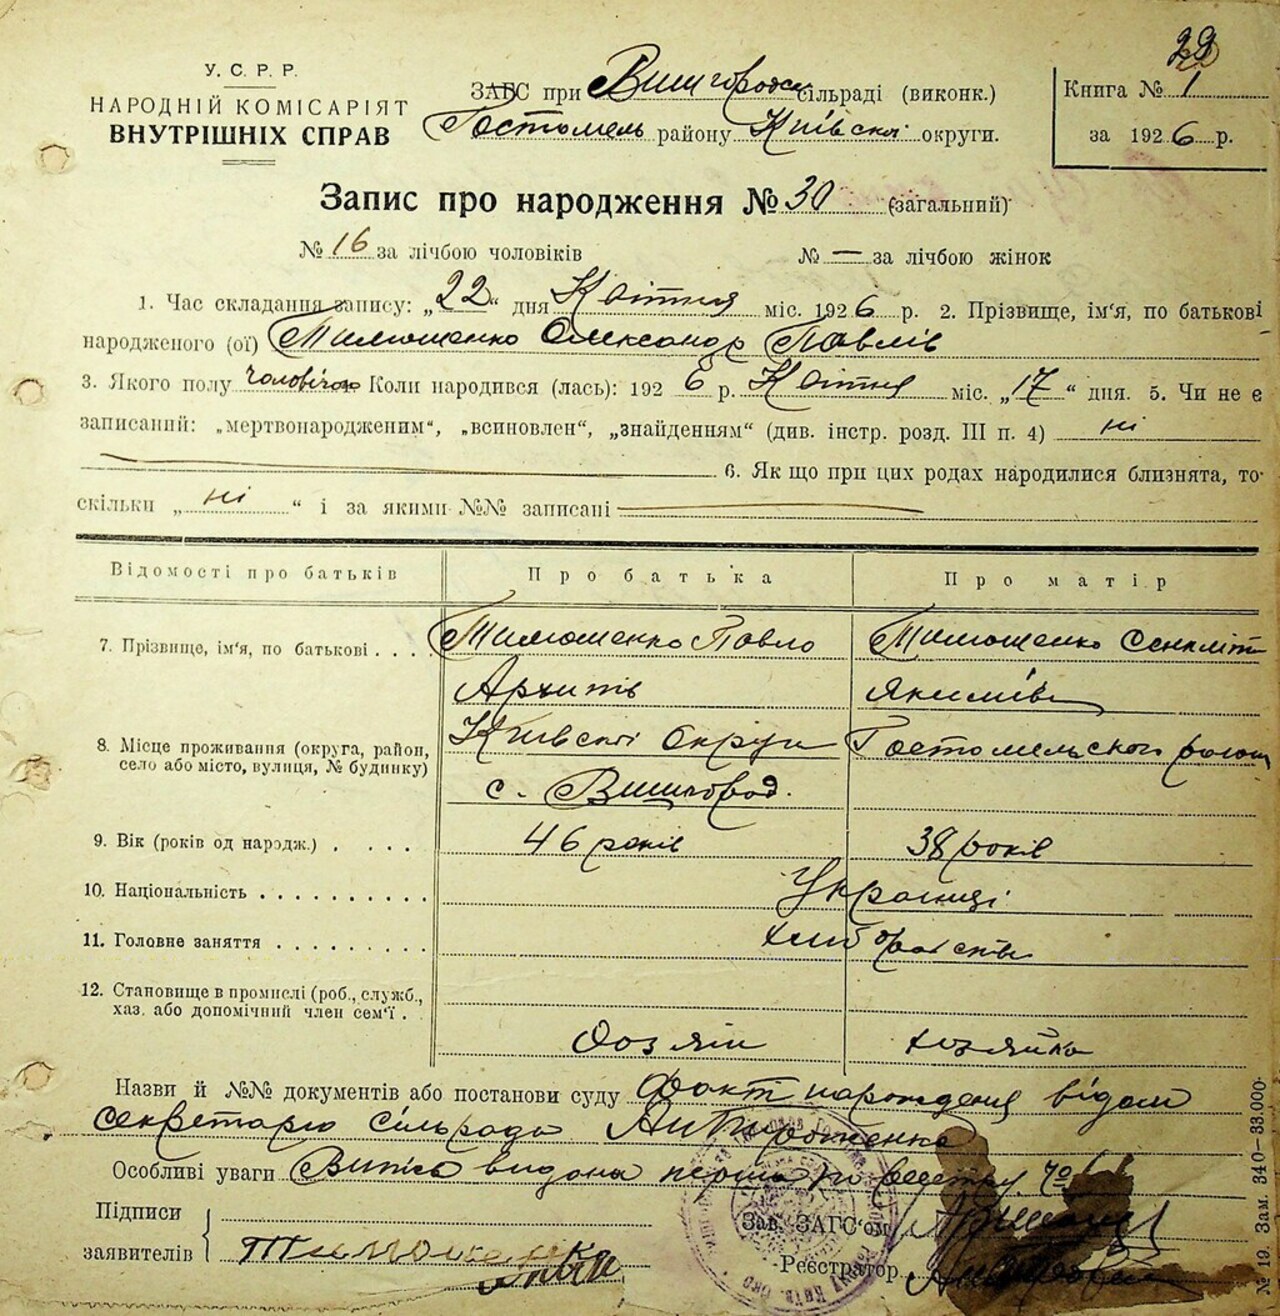 29
У. С. Р. Р.
НАРОДНІЙ КОМІСАРІЯТ
ВНУТРІШНІХ СПРАВ
ЗАГС при Вишгородск сільраді (виконк.)
Гостомель району Київскої округи.
Книга № 1
за 1926 р.
Запис про народження № 30 (загальний)
№ 16 за лічбою чоловіків № — за лічбою жінок
1. Час складання запису: „22" дня Квітня міс. 1926 р. 2. Прізвище, ім'я, по батькові
народженого (ої) Тимошенко Олександр Павлів
3. Якого полу чоловічого Коли народився (лась): 1926 р. Квітня міс. „17" дня. 5. Чи не є
записаний: „мертвонародженим", „всиновлен", „знайденням" (див. інстр. розд. III п. 4) ні
6. Як що при цих родах народилися близнята, то
скільки „ ні " і за якими №№ записані
Відомості про батьків Про батька Про матір
7. Прізвище, ім'я, по батькові . . . . Тимошенко Павло Тимошенко
Архипів Якимівн
8. Місце проживання (округа, район, Київскої Округи Гостомельского району
село або місто, вулиця, № будинку) с. Вишгород.
9. Вік (років од народж.) . . . . 46 років 38 років
10. Національність . . . . . . . . . . Українці
11. Головне заняття . . . . . . . . . хліборобство
12. Становище в промислі (роб., служб.,
хаз. або допомічний член сем'ї .
хозяїн хозяйка
Назви й №№ документів або постанови суду Факт нарождения відом
секретарю сільради
Особливі уваги Випис видана перша по реестру №
Підписи
заявителів Тимошенко
Зав. ЗАГС'ом
Реєстратор
№ 19. Зам. 340—33.000.